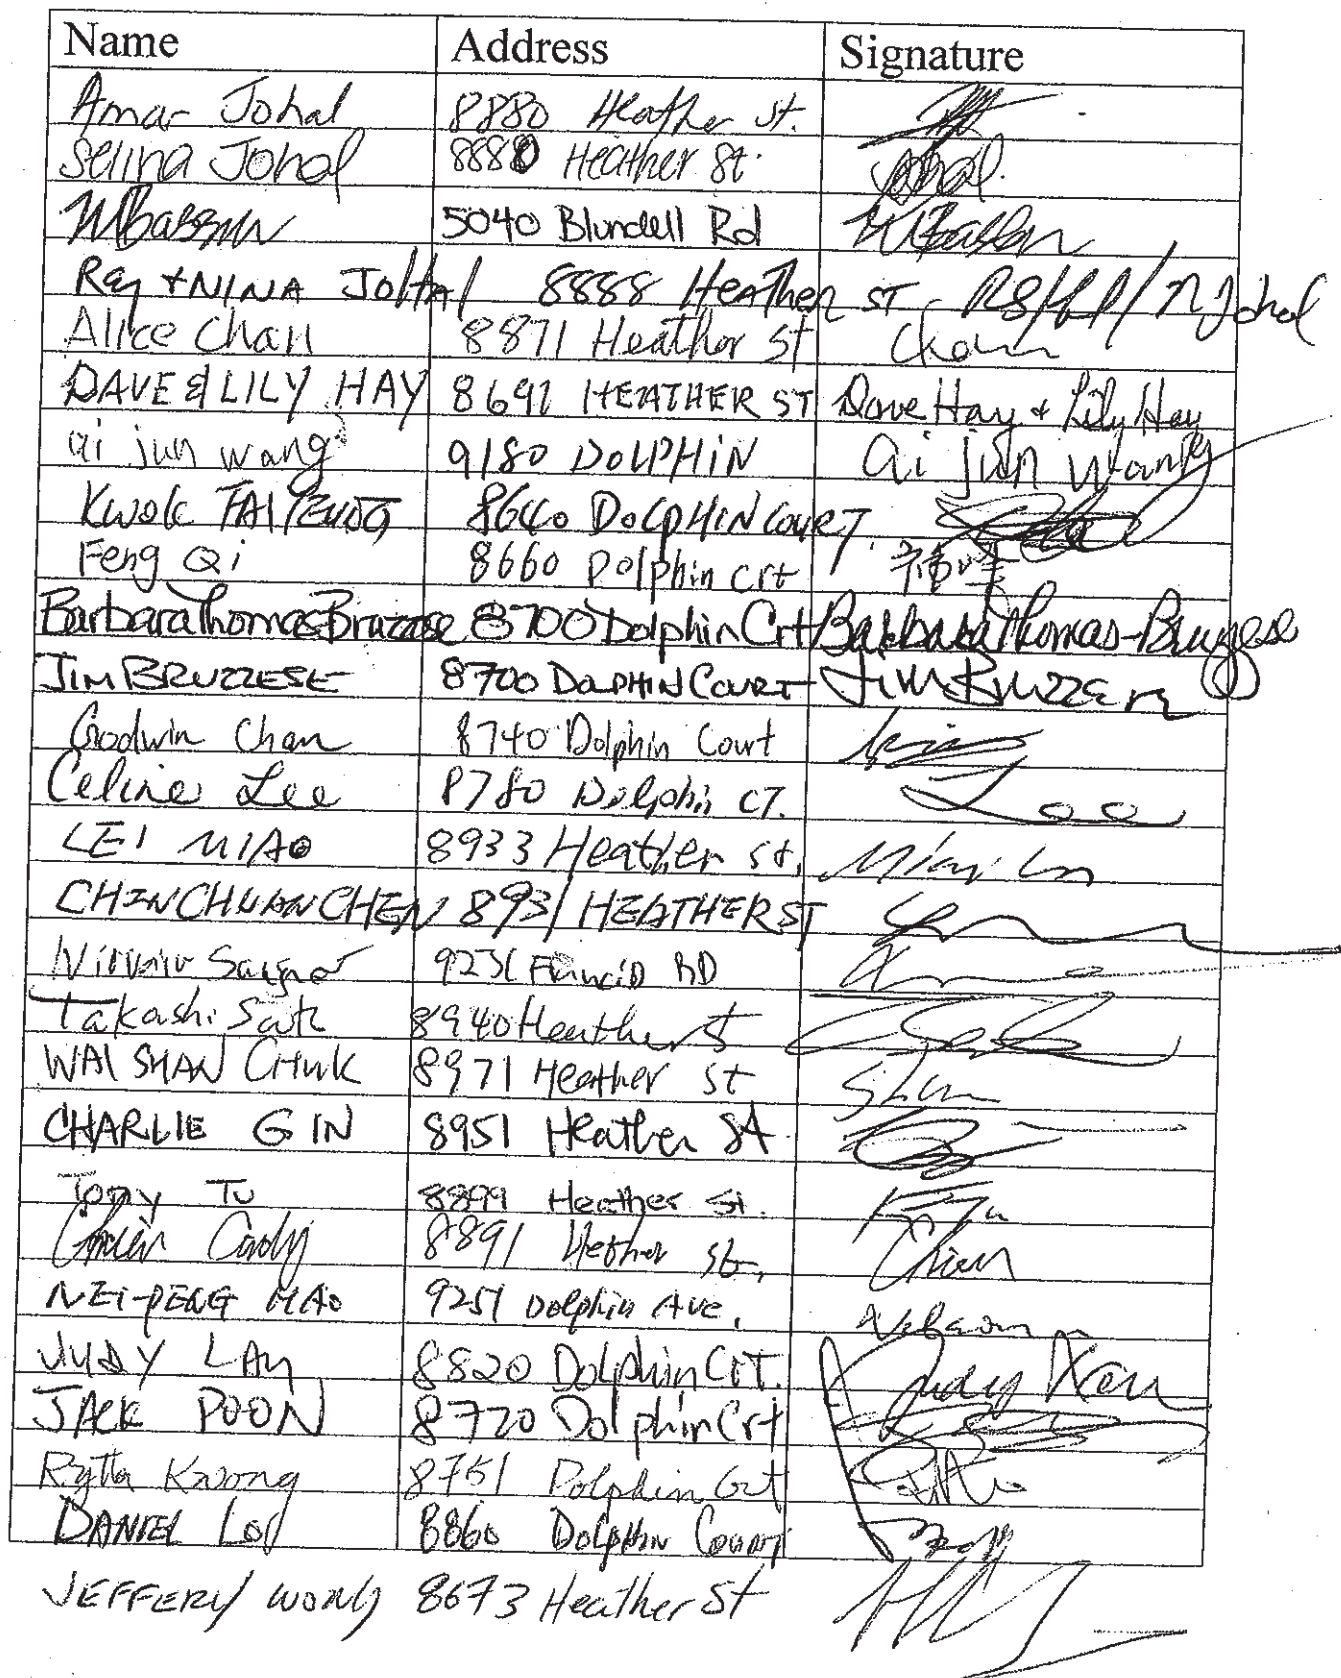 Name Address Signature
Amar Johal 8880 Heather St.
Selina Johal 8880 Heather St. Johal.
5040 Blundell Rd
Ray + NINA JOHAL 8888 HEATHER ST N Johal
Alice Chan 8871 Heather St Chan
DAVE & LILY HAY 8691 HEATHER ST Dave Hay + Lily Hay
Qi jun wang 9180 DOLPHIN Qi jun wang
KWOK TAI 8640 DOLPHIN COURT.
Feng Qi 8660 Dolphin crt
Barbara Thomas-Bruzzese 8700 Dolphin Crt Barbara Thomas-Bruzzese
JIM BRUZZESE 8700 DOLPHIN COURT Jim Bruzzese
Godwin Chan 8740 Dolphin Court
Celine Lee 8780 Dolphin CT. Lee
LEI MIAO 8933 Heather st.
CHIN CHUAN CHEN 8931 HEATHER ST
RD
Takashi 8940 Heather St
WAI SHAN CHUK 8971 Heather St
CHARLIE GIN 8951 Heather St
Tony Tu 8899 Heather St.
8891 Hether St.
NEI-PENG MAO 9251 Dolphin Ave.
JUDY LAU 8820 Dolphin Crt. Judy Lau
JACK POON 8720 Dolphin Crt
Rytta Kwong 8751 Dolphin Crt
DANIEL 8860 DOLPHIN Court
JEFFERY WONG 8673 Heather St